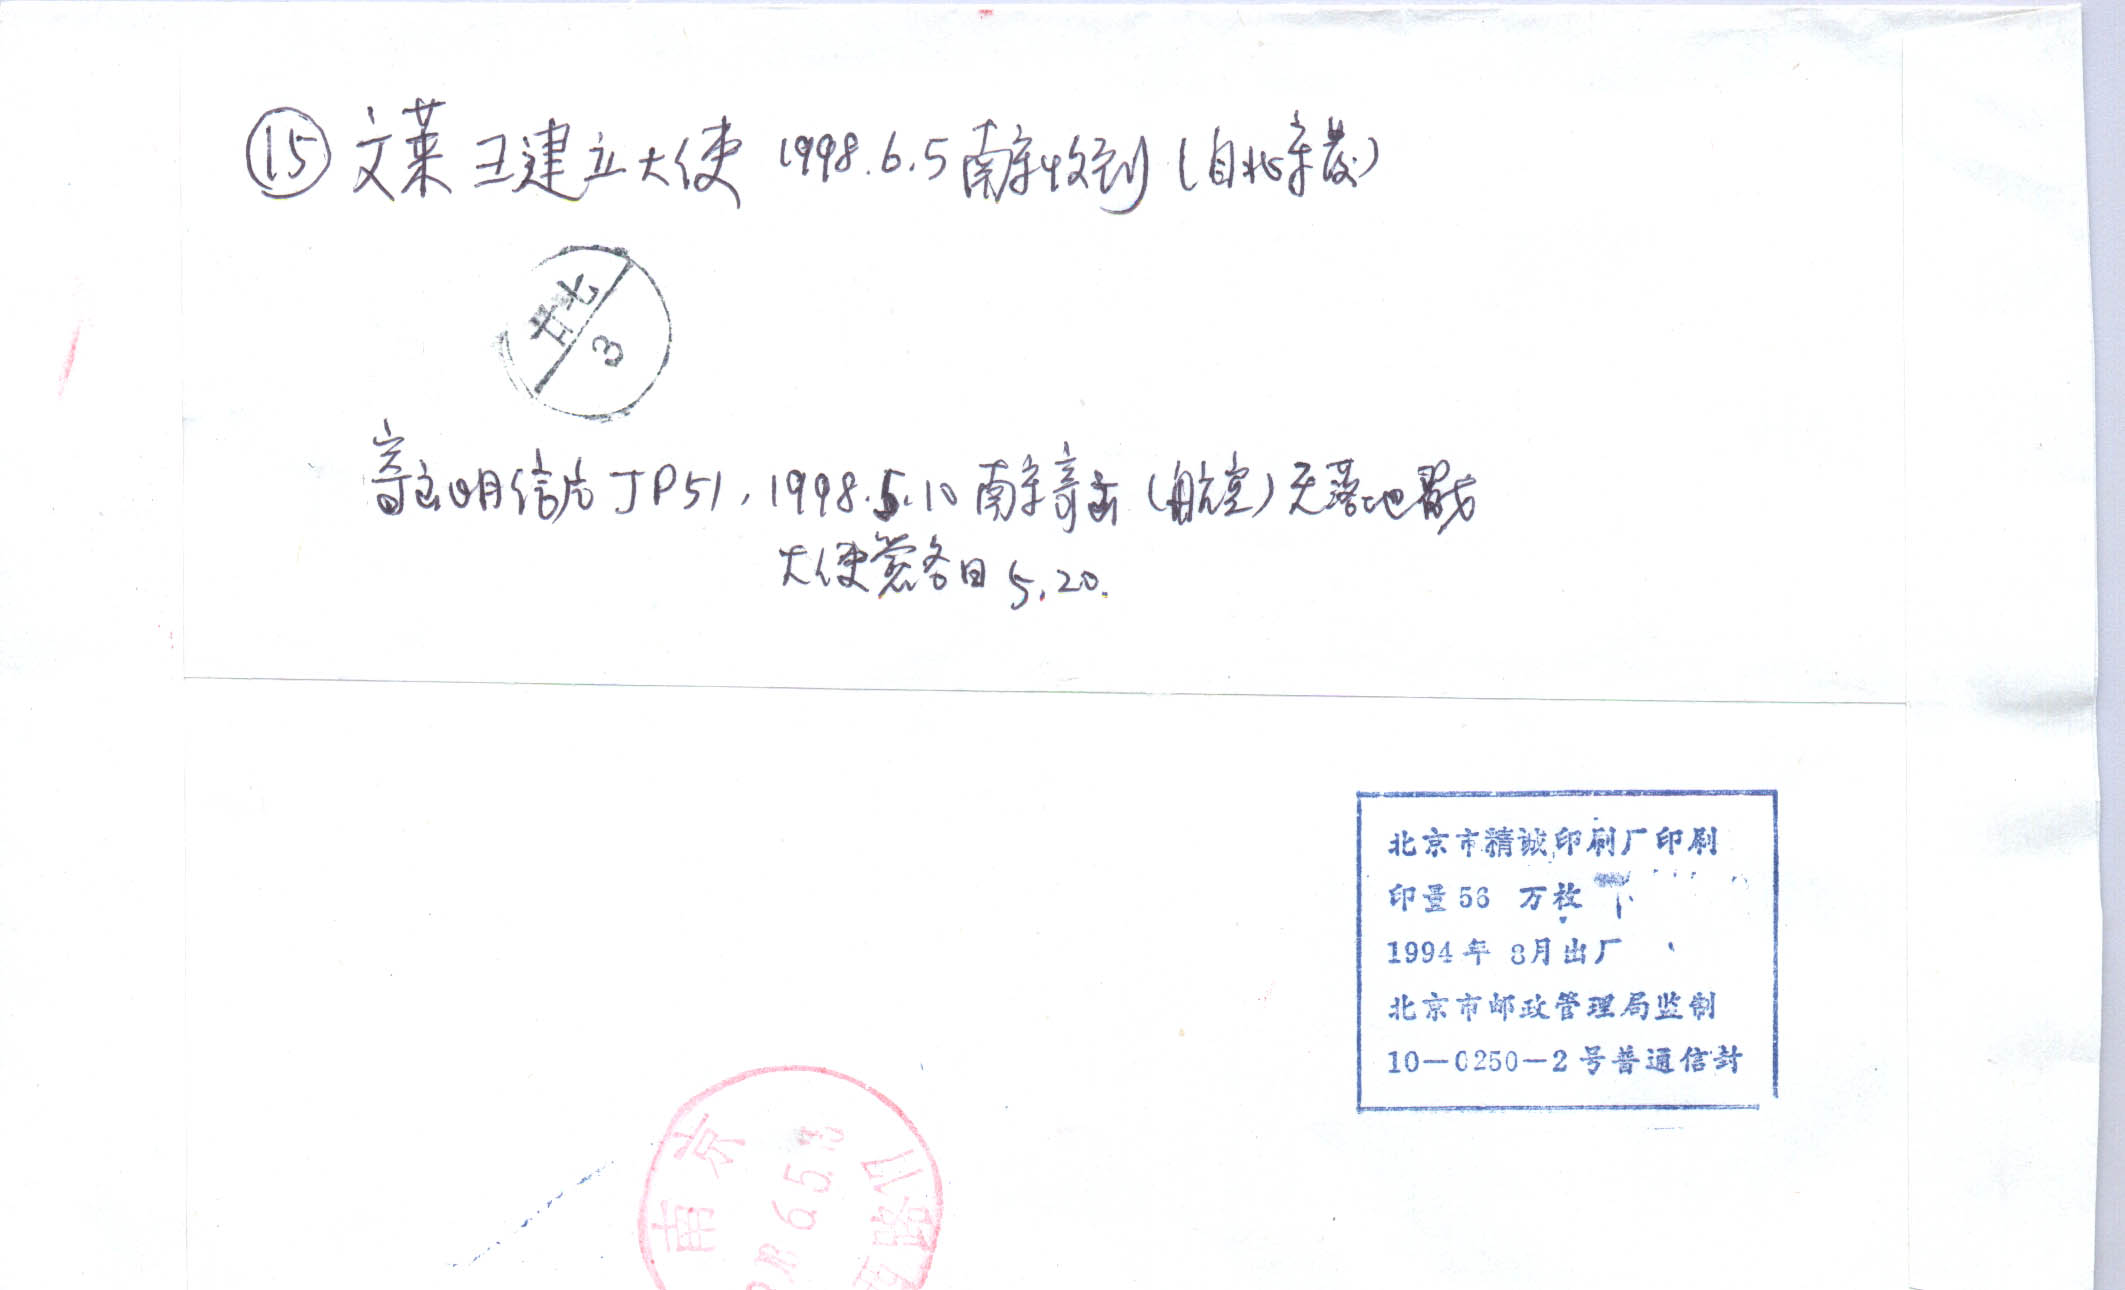 ⑮ 文莱 王建立大使 1998.6.5 南京收到（自北京发）
廿北
3
寄去明信片 JP51，1998.5.10 南京寄出（航空）无落地戳
大使签名日 5.20.
北京市精诚印刷厂印刷
印量56 万枚
1994年 8月出厂
北京市邮政管理局监制
10—0250—2号普通信封
南京
6.5.13